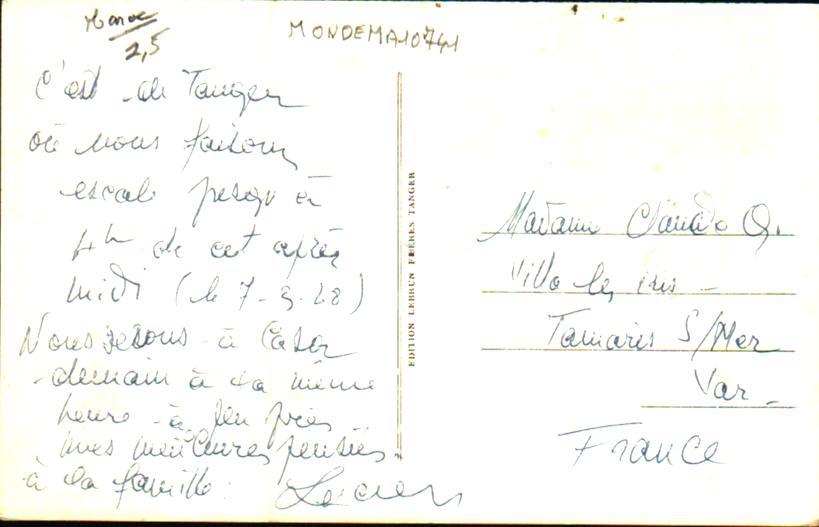 Maroc
2,5
MONDEMA10741
C'est de Tanger
où nous faisons
escale jusqu'à
4h de cet après
midi (le 7-9-28)
Nous serons à Casa
demain à la même
heure à peu près
mes meilleures pensées
à la famille. Lucien
EDITION LEBRUN FRERES TANGER
Madame Claude Q.
Villa les iris -
Tamaris S/Mer
Var -
France